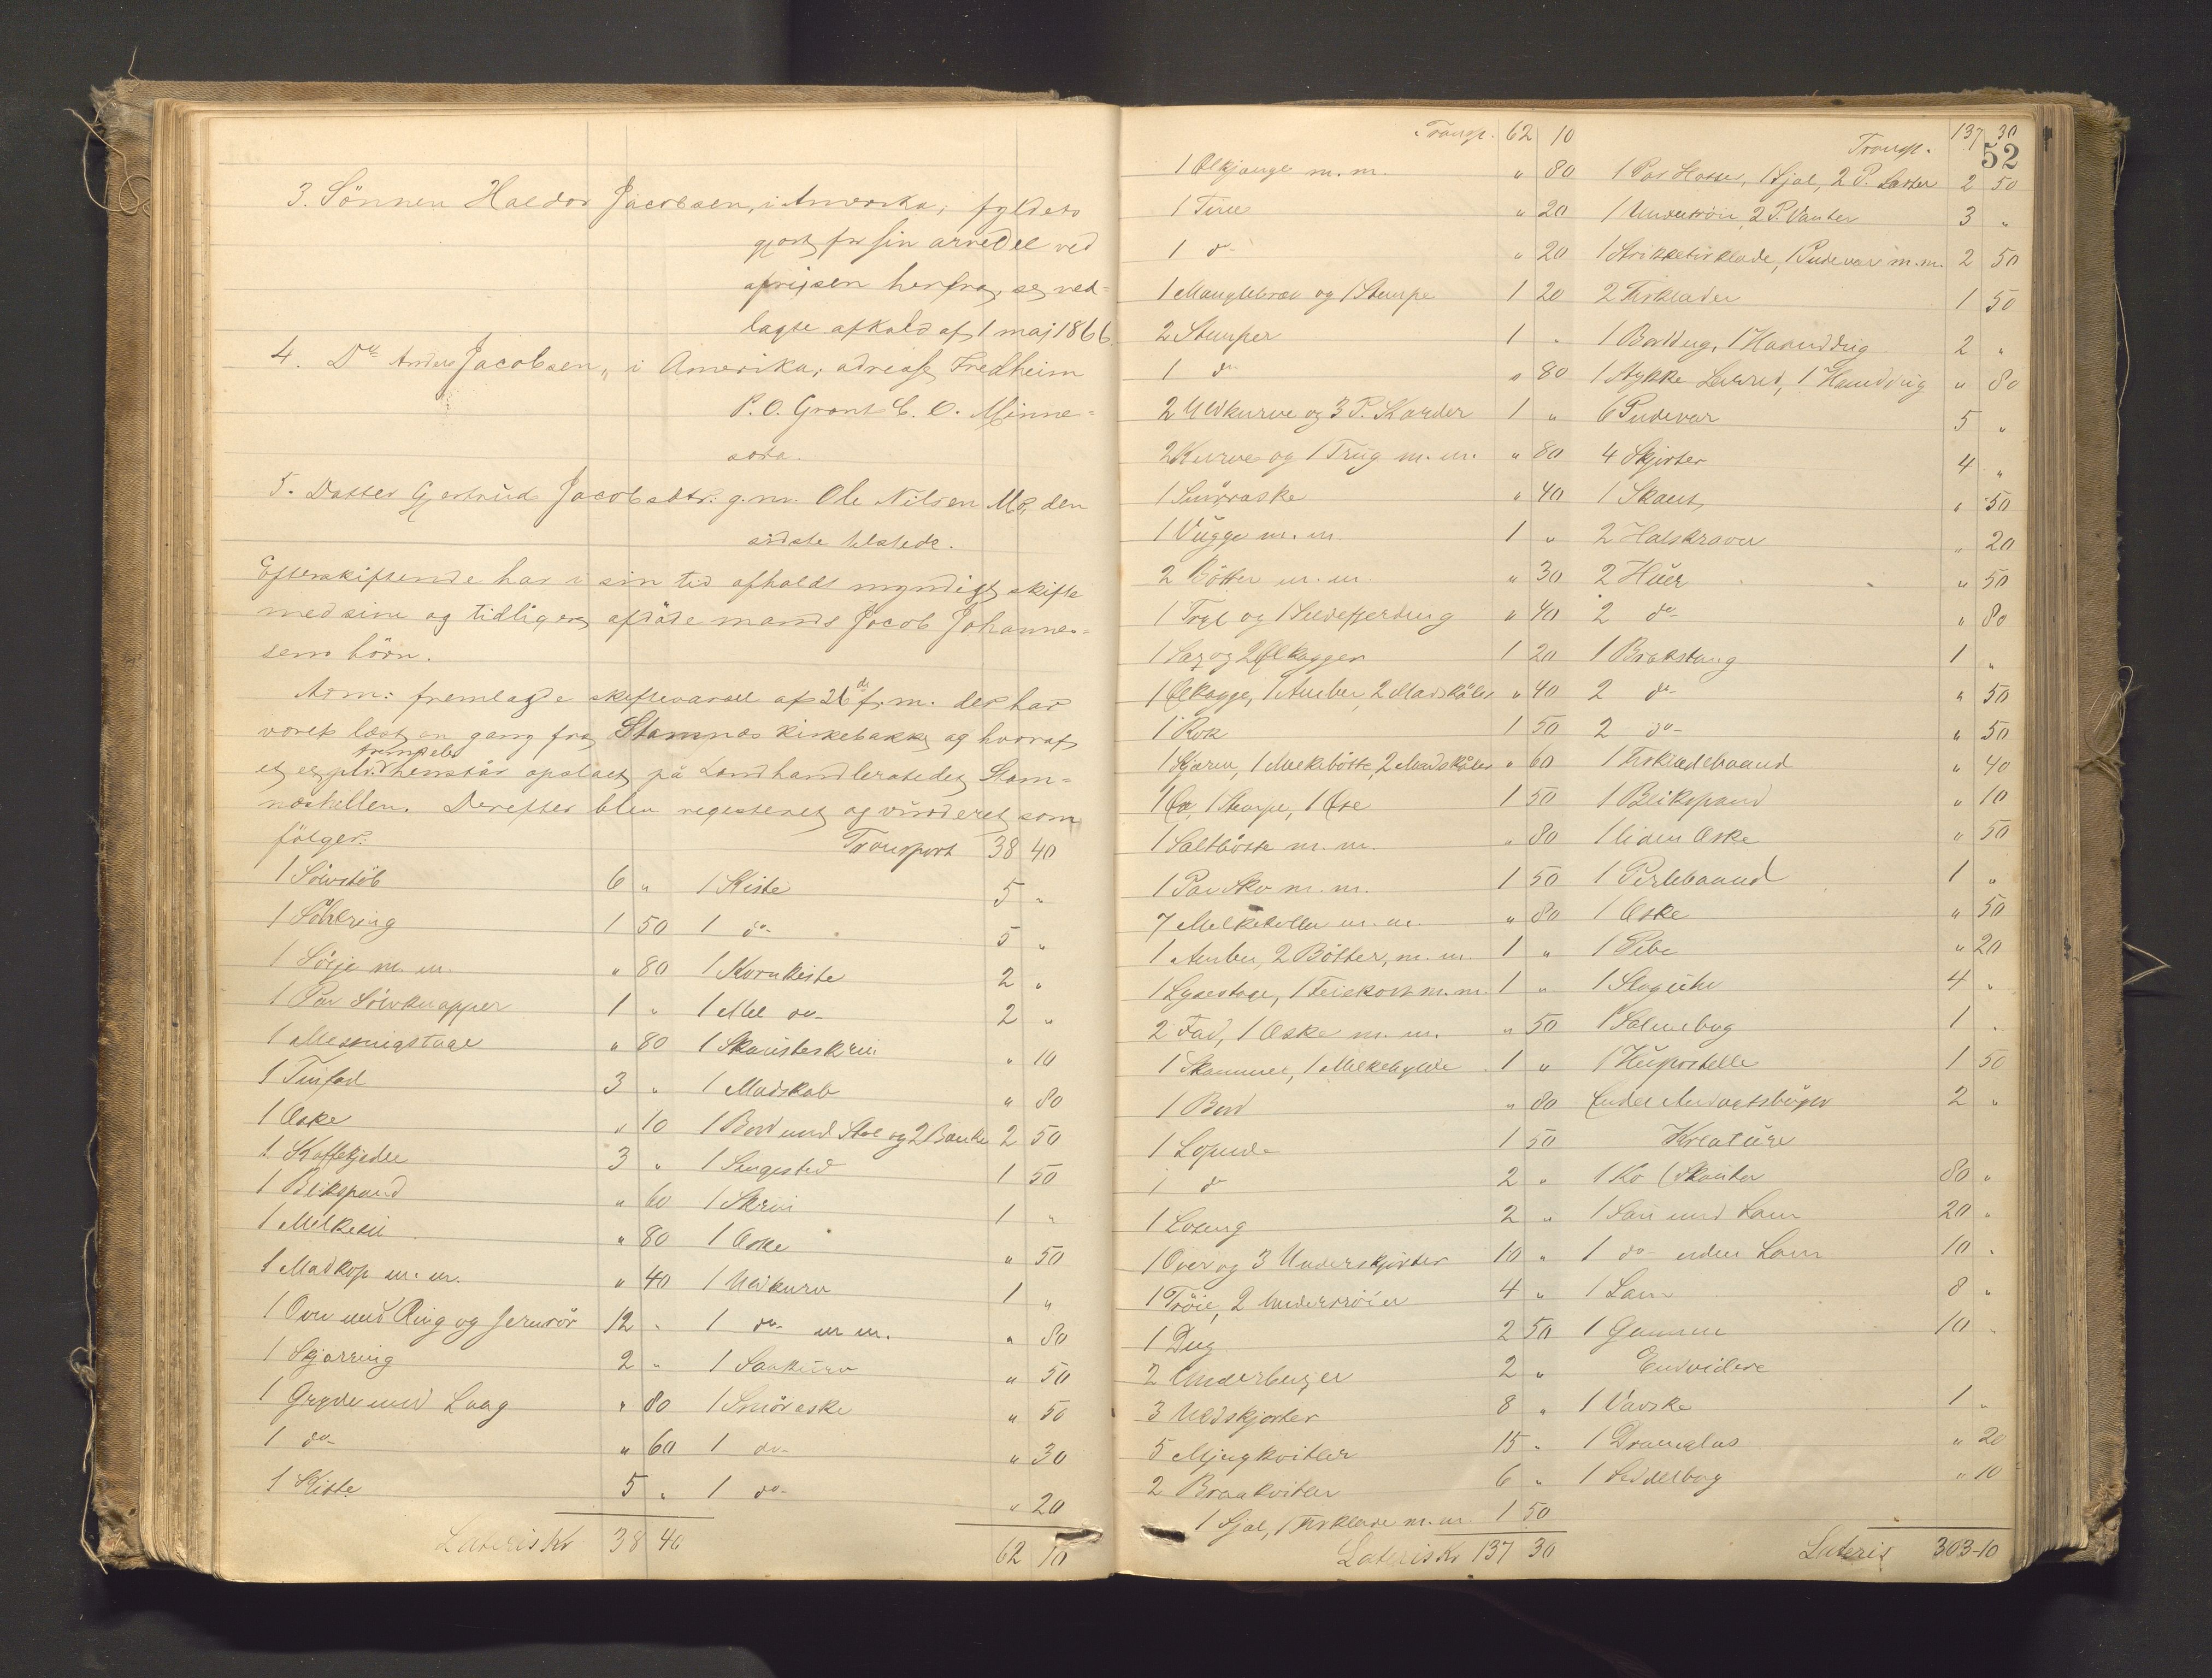 3. Sönnen Haldor Jacobsen, i Amerika, fyldest-
gjort for sin arvedel ved
afreisen herfra, se ved-
lagte afkald af 1 maj 1866.
4. Do Anders Jacobsen, i Amerika, adresse Fredheim
P. O. Grant C. O. Minne-
sota.
5. Datter Gjertrud Jacobsdtr. g. m. Ole Nilsen Mo, den
sidste tilstede.
Efterskiftende har i sin tid afholdt myndigt skifte
med sine og tidligere afdöde mands Jacob Johannes-
sens börn.
Arm: fremlagde skiftevarsel af 26de f. m. der har
været læst en gang fra Stamnæs kirkebakke og hvoraf
et expl. henstår opslaaet på Landhandlerstedet Stam-
næshellen. Derefter blev registeret og vurderet som
fölger:
Transport 38 40
1 Sölvstöb 6 "
1 Sölvring 1 50
1 Sölje m. m. " 80
1 Par Sölvknapper 1 "
1 Messingstage " 80
1 Tinfad 3 "
1 Æske " 10
1 Kaffekjedel 3 "
1 Blikspand " 60
1 Melkesil " 80
1 Madkop m. m. " 40
1 Ovn med Ring og Jernrör 12 "
1 Skjærring 2 "
1 Gryde med Laag " 80
1 do " 60
1 Kiste 5 "
Lateris Kr 38 40
1 Kiste 5 "
1 do 5 "
1 Kornkiste 2 "
1 Mel do 2 "
1 Skrin " 10
1 Madskab " 80
1 Bord med Stol og 2 Bænke 2 50
1 Sengested 1 50
1 Skrin 1 "
1 Æske " 50
1 Uldkurv 1 "
1 do m. m. " 80
1 Saakurv " 50
1 Smöræske " 50
1 do " 30
1 do " 20
62 10
Transp. 62 10
1 Ølkjenge m. m. " 80
1 Tine " 20
1 do " 20
1 Manglebræt og 1 Stampe 1 20
2 Stamper 1 "
1 do " 80
2 Uldkurve og 3 P. Karder 1 "
2 Kurve og 1 Trug m. m. " 80
1 Smöræske " 40
1 Vugge m. m. 1 "
2 Bötter m. m. " 30
1 Tryl og 1 Sildefjerding " 40
1 Sag og 2 Ølkagger 1 20
1 Ølkagge, 1 Ambar, 2 Madskåler " 40
1 Rok 1 50
1 Kjærne, 1 Melkebötte, 2 Madskåler " 60
1 Øx, 1 Stampe, 1 Øse 1 50
1 Saltbötte m. m. " 80
1 Par Sko m. m. 1 50
7 Melkekoller m. m. " 80
1 Ambar, 2 Bötter, m. m. 1 "
1 Lysestage, 1 Feiekost m. m. 1 "
2 Fad, 1 Æske m. m. " 50
1 Skammel, 1 Melkehylde 1 "
1 Bord " 80
1 Lopude 1 50
1 do 2 "
1 Loseng 2 "
1 Over og 3 Underskjörter 10 "
1 Tröie, 2 Undertröier 4 "
1 Dug 2 50
2 Underbuxer 2 "
3 Uldskjorter 8 "
5 Mjugkvitler 15 "
2 Braakvitler 6 "
1 Sjal, 1 Tørklæde m. m. 1 50
Lateris Kr 137 30
52
Transp. 137 30
1 Par Hoser, 1 Sjal, 2 P. Lester 2 50
1 Undertröie, 2 P. Vanter 3 "
1 Strikketørklæde, 1 Pudevar m. m. 2 50
2 Tørklæder 1 50
1 Bordug, 1 Haanddug 2 "
1 Stykke Lærred, 1 Handdug " 80
6 Pudevar 5 "
4 Skjorter 4 "
1 Skaut " 50
2 Halskraver " 20
2 Huer " 50
2 do " 80
1 Brokstang 1 "
2 do " 50
2 do " 50
1 Tørklædebaand " 40
1 Blikspand " 10
1 liden Æske " 50
1 Perlebaand 1 "
1 Æske " 50
1 Pibe " 20
1 Slaguhr 4 "
1 Salmebog 1 "
1 Huspostille 1 50
Endel Andagtsböger 2 "
Kreature
1 Ko (Skauta 80 "
1 Sau med Lam 20 "
1 do uden Lam 10 "
1 Lam 8 "
1 Gammel 10 "
Endvidere
1 Væske 1 "
1 Dramglas " 20
1 Seddelbog " 10
Lateris 303-10